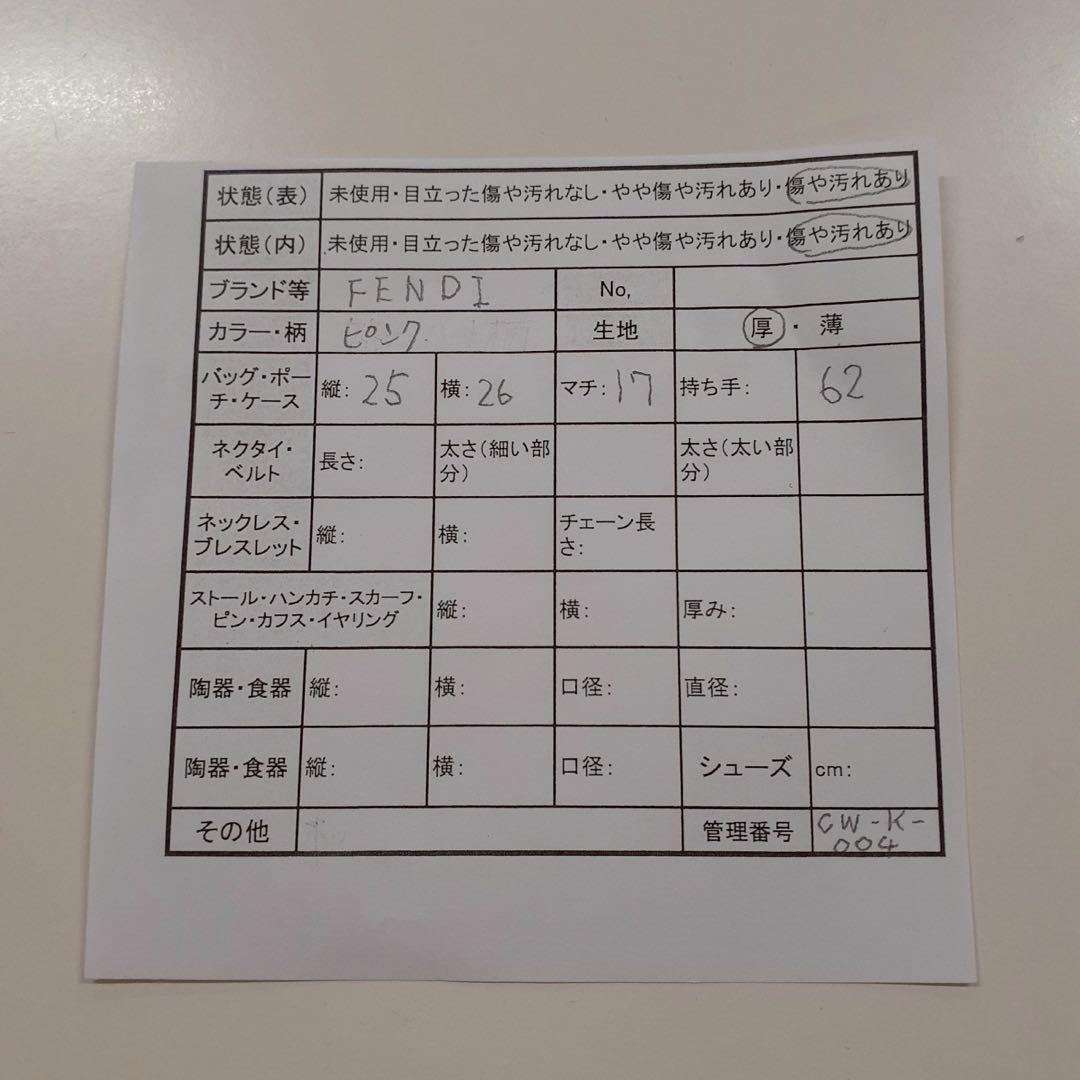 状態（表） 未使用・目立った傷や汚れなし・やや傷や汚れあり・傷や汚れあり
状態（内） 未使用・目立った傷や汚れなし・やや傷や汚れあり・傷や汚れあり
ブランド等 FENDI No,
カラー・柄 ピンク 生地 厚・薄
バッグ・ポー
チ・ケース 縦: 25 横: 26 マチ: 17 持ち手: 62
ネクタイ・
ベルト 長さ: 太さ（細い部
分） 太さ（太い部
分）
ネックレス・
ブレスレット 縦: 横: チェーン長
さ:
ストール・ハンカチ・スカーフ・
ピン・カフス・イヤリング 縦: 横: 厚み:
陶器・食器 縦: 横: 口径: 直径:
陶器・食器 縦: 横: 口径: シューズ cm:
その他 管理番号 CW-K-
004